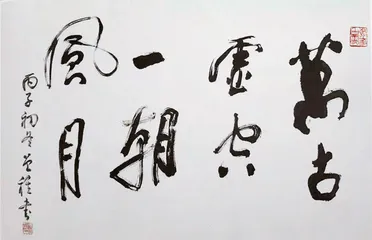 萬古
虛空
一朝
風月
丙子初冬 書